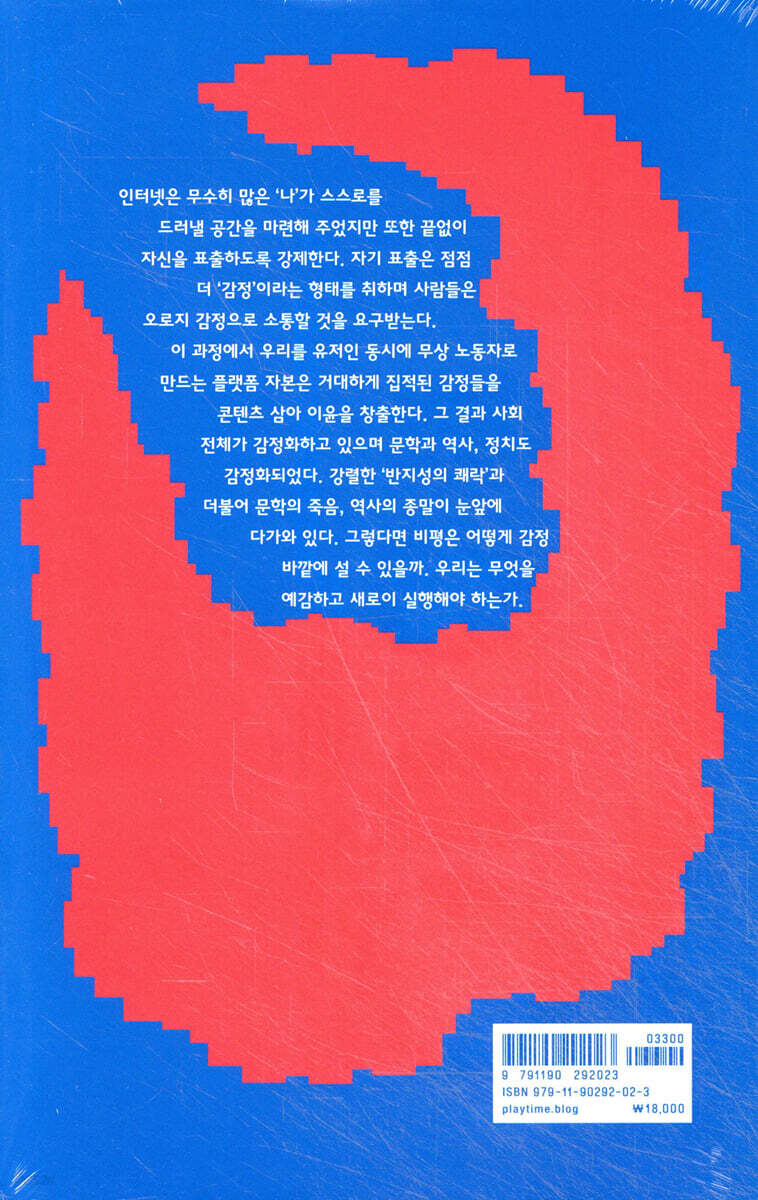 인터넷은 무수히 많은 ‘나’가 스스로를
드러낼 공간을 마련해 주었지만 또한 끝없이
자신을 표출하도록 강제한다. 자기 표출은 점점
더 ‘감정’이라는 형태를 취하며 사람들은
오로지 감정으로 소통할 것을 요구받는다.
이 과정에서 우리를 유저인 동시에 무상 노동자로
만드는 플랫폼 자본은 거대하게 집적된 감정들을
콘텐츠 삼아 이윤을 창출한다. 그 결과 사회
전체가 감정화하고 있으며 문학과 역사, 정치도
감정화되었다. 강렬한 ‘반지성의 쾌락’과
더불어 문학의 죽음, 역사의 종말이 눈앞에
다가와 있다. 그렇다면 비평은 어떻게 감정
바깥에 설 수 있을까. 우리는 무엇을
예감하고 새로이 실행해야 하는가.
03300
9 791190 292023
ISBN 979-11-90292-02-3
playtime.blog ₩18,000